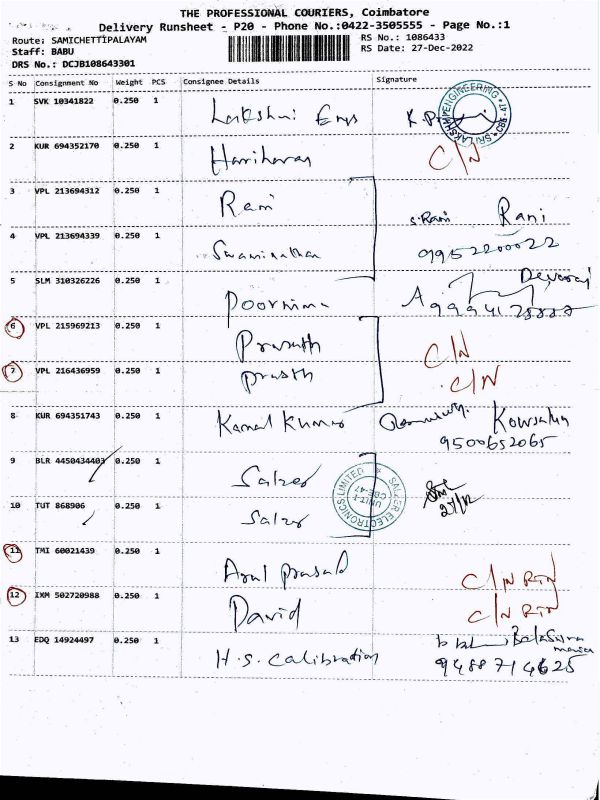 THE PROFESSIONAL COURIERS, Coimbatore
Delivery Runsheet - P20 - Phone No.:0422-3505555 - Page No.:1
Route: SAMICHETTIPALAYAM RS No.: 1086433
Staff: BABU RS Date: 27-Dec-2022
DRS No.: DCJB108643301
S No Consignment No Weight PCS Consignee Details Signature
1 SVK 10341822 0.250 1 Lakshmi Engs K.P
SRI LAKSHMI ENGINEERING * CBE-47 *
2 KUR 694352170 0.250 1 Hariharan C/N
3 VPL 213694312 0.250 1 Rani S.Rani Rani
4 VPL 213694339 0.250 1 Swaminathan 9952200022
5 SLM 310326226 0.250 1 Poornima Devaraj
6 VPL 215969213 0.250 1 Prasath C/N
7 VPL 216436959 0.250 1 prasth C/N
8 KUR 694351743 0.250 1 Kamal Kumar Kowsalya
9500652065
9 BLR 4450434403 0.250 1 Salzer
SALZER ELECTRONICS LIMITED UNIT-I CBE-47
10 TUT 868906 0.250 1 Salzer 27/12
11 TMI 60021439 0.250 1 Arul prasad C/N RTN
12 IXM 502720988 0.250 1 David C/N RTN
13 EDQ 14924497 0.250 1 H.S. Calibration
9488714625